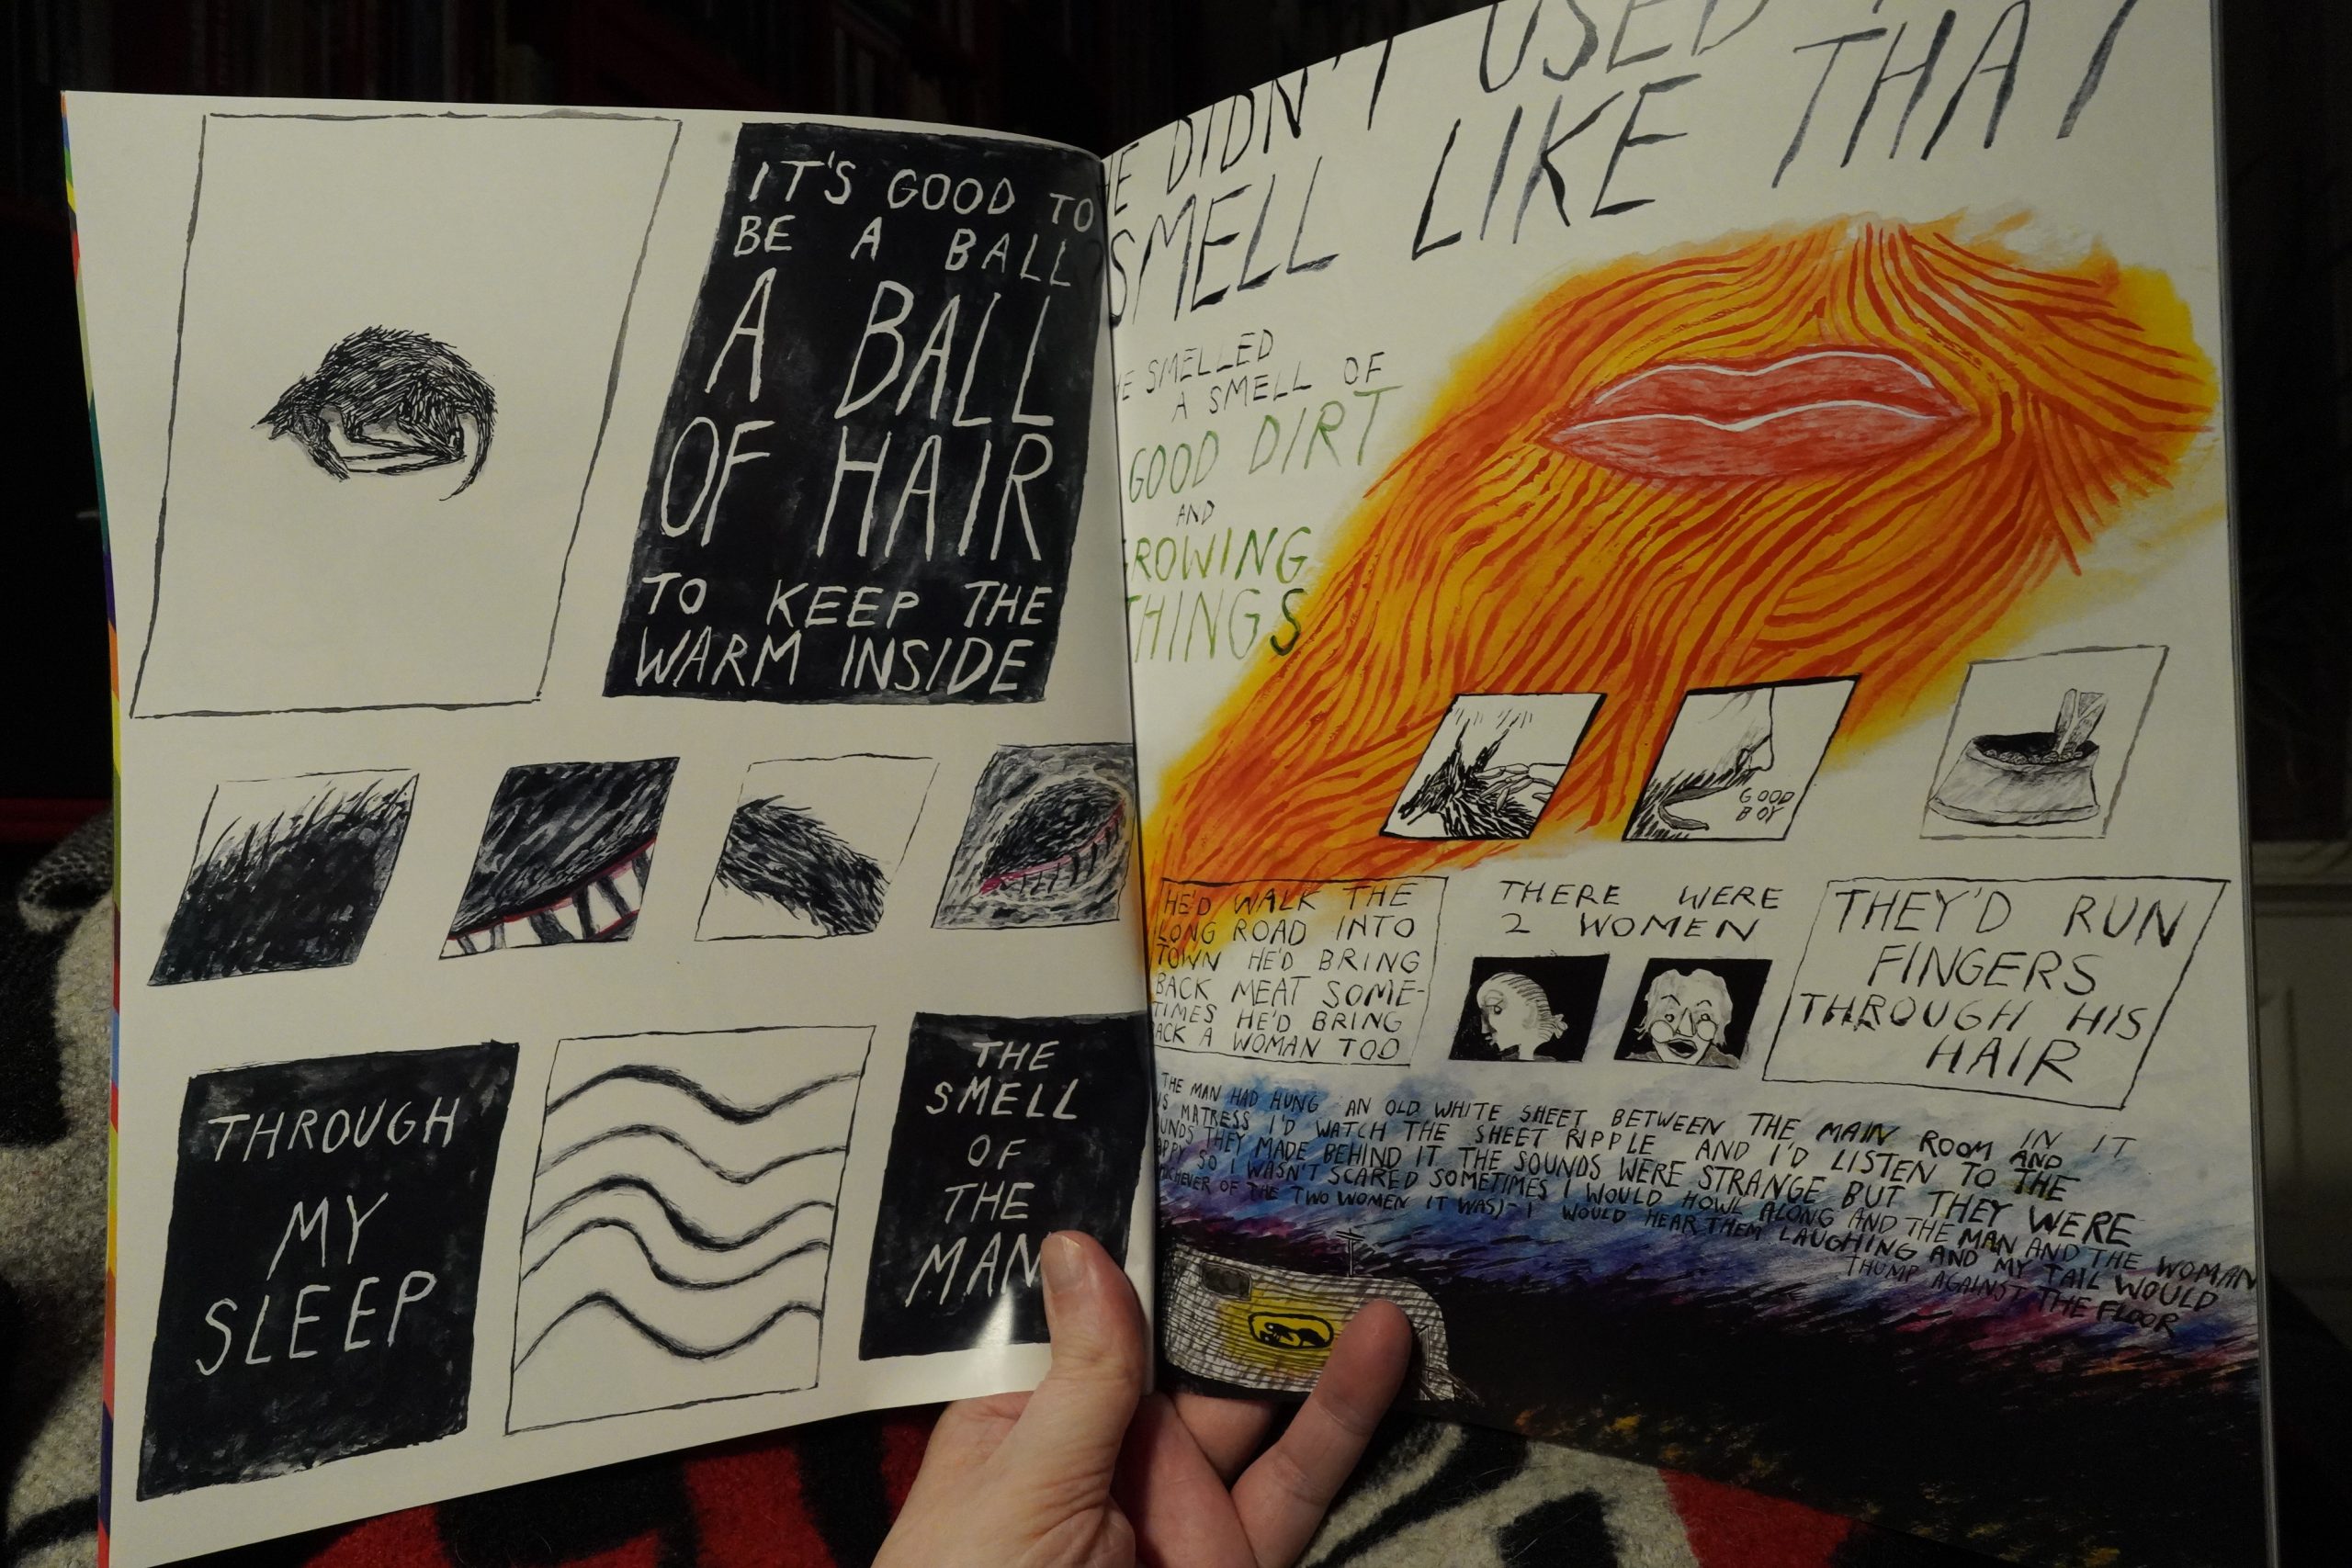 IT'S GOOD TO
BE A BALL
A BALL
OF HAIR
TO KEEP THE
WARM INSIDE
THROUGH
MY
SLEEP
THE
SMELL
OF
THE
MAN
HE DIDN'T USED
SMELL LIKE THAT
HE SMELLED
A SMELL OF
GOOD DIRT
AND
GROWING
THINGS
GOOD
BOY
HE'D WALK THE
LONG ROAD INTO
TOWN HE'D BRING
BACK MEAT SOME-
TIMES HE'D BRING
BACK A WOMAN TOO
THERE WERE
2 WOMEN
THEY'D RUN
FINGERS
THROUGH HIS
HAIR
THE MAN HAD HUNG AN OLD WHITE SHEET BETWEEN THE MAIN ROOM IN IT
MATRESS I'D WATCH THE SHEET RIPPLE AND I'D LISTEN TO THE
SOUNDS THEY MADE BEHIND IT THE SOUNDS WERE STRANGE BUT THEY WERE
HAPPY SO I WASN'T SCARED SOMETIMES I WOULD HOWL ALONG AND THE MAN AND THE WOMAN
WHICHEVER OF THE TWO WOMEN IT WAS)- I WOULD HEAR THEM LAUGHING AND MY TAIL WOULD
THUMP AGAINST THE FLOOR